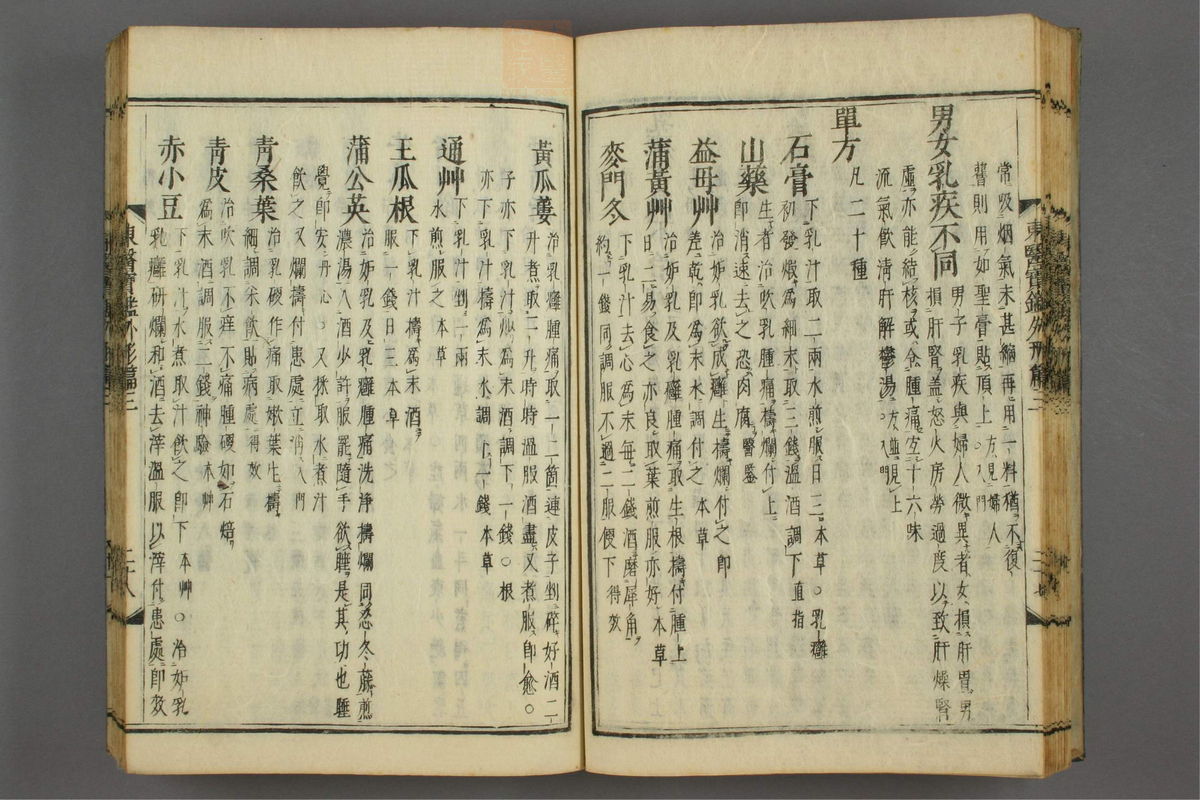 常吸烟氣未甚縮再用一料猶不復
聾則用如聖膏貼頂上方見婦人○入門
男女乳疾不同男子乳疾與婦人微異者女損肝胃男
損肝腎盖怒火房勞過度以致肝燥腎
虛亦能結核或食腫痛宜十六味
流氣飮淸肝解鬱湯方並見上○入門
單方
凡二十種
石膏下乳汁取二兩水煎服日三本草○乳癰
初發煆爲細末取三錢溫酒調下直指
山藥生者治吹乳腫痛擣爛付上
即消速去之恐肉腐醫鑒
益母艸治妬乳欲成癰生擣爛付之即
差乾即爲末水調付之本草
蒲黃艸治妬乳及乳癰腫痛取生根擣付腫上
日二易食之亦良取葉煎服亦好本草
麥門冬下乳汁去心爲末每二錢酒磨犀角
約一錢同調服不過二服便下得效
東醫寶鑑外形篇三
黃瓜蔞治乳癰腫痛取一二箇連皮子剉碎好酒二
升煮取一升時時溫服酒盡又煮服即愈○
子亦下乳汁炒爲末酒調下一錢○根
亦下乳汁擣爲末水調上一錢本草
通艸下乳汁剉一兩
水煎服之本草
王瓜根下乳汁擣爲末酒
服一錢日三本草
蒲公英治妬乳及乳癰腫痛洗淨擣爛同忍冬藤煎
濃湯入酒少許服罷隨手欲睡是其功也睡
覺即安丹心○又揪取水煮汁
飮之又爛擣付患處立消入門
靑桑葉治乳硬作痛取嫩葉生擣
細調米飮貼病處得效
靑皮治吹乳不痒不痛腫硬如石焙
爲末酒調服二錢神驗本艸
赤小豆下乳汁水煮取汁飮之即下本艸○治妬乳
乳癰研爛和酒去滓溫服以滓付患處即效
東醫寶鑑外形篇三
二十八